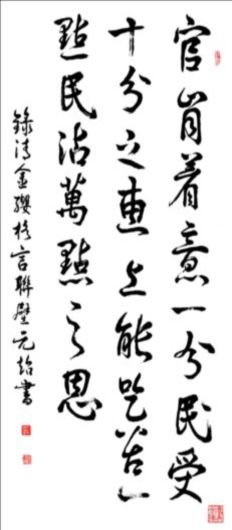 官肯著意一分民受
十分之惠上能吃苦一
點民沾萬點之恩
錄清金纓格言聯璧元詒書